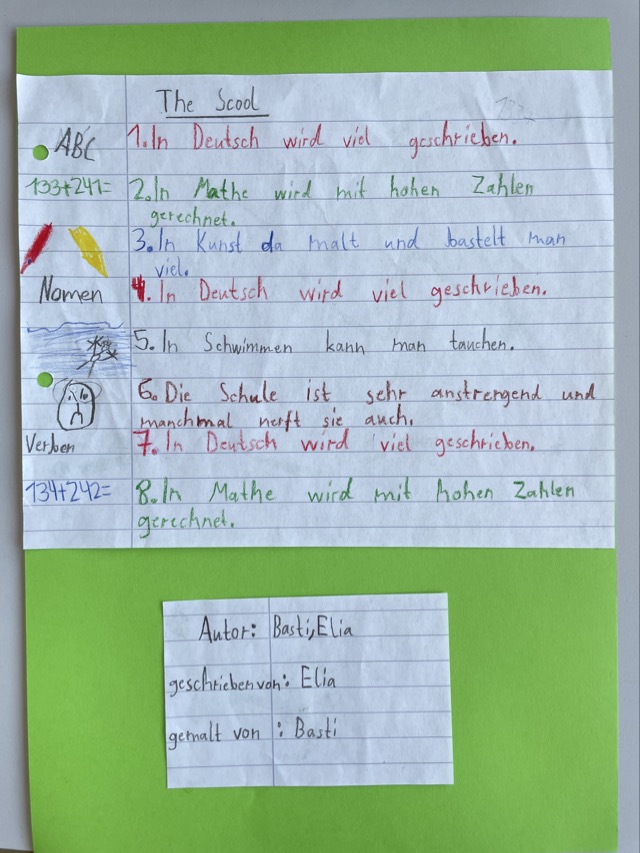 The Scool
ABC
1. In Deutsch wird viel geschrieben.
133+241=
2. In Mathe wird mit hohen Zahlen
gerechnet.
3. In Kunst da malt und bastelt man
viel.
Nomen
4. In Deutsch wird viel geschrieben.
5. In Schwimmen kann man tauchen.
6. Die Schule ist sehr anstrengend und
manchmal nerft sie auch.
Verben
7. In Deutsch wird viel geschrieben.
134+242=
8. In Mathe wird mit hohen Zahlen
gerechnet.
Autor: Basti, Elia
geschrieben von: Elia
gemalt von : Basti